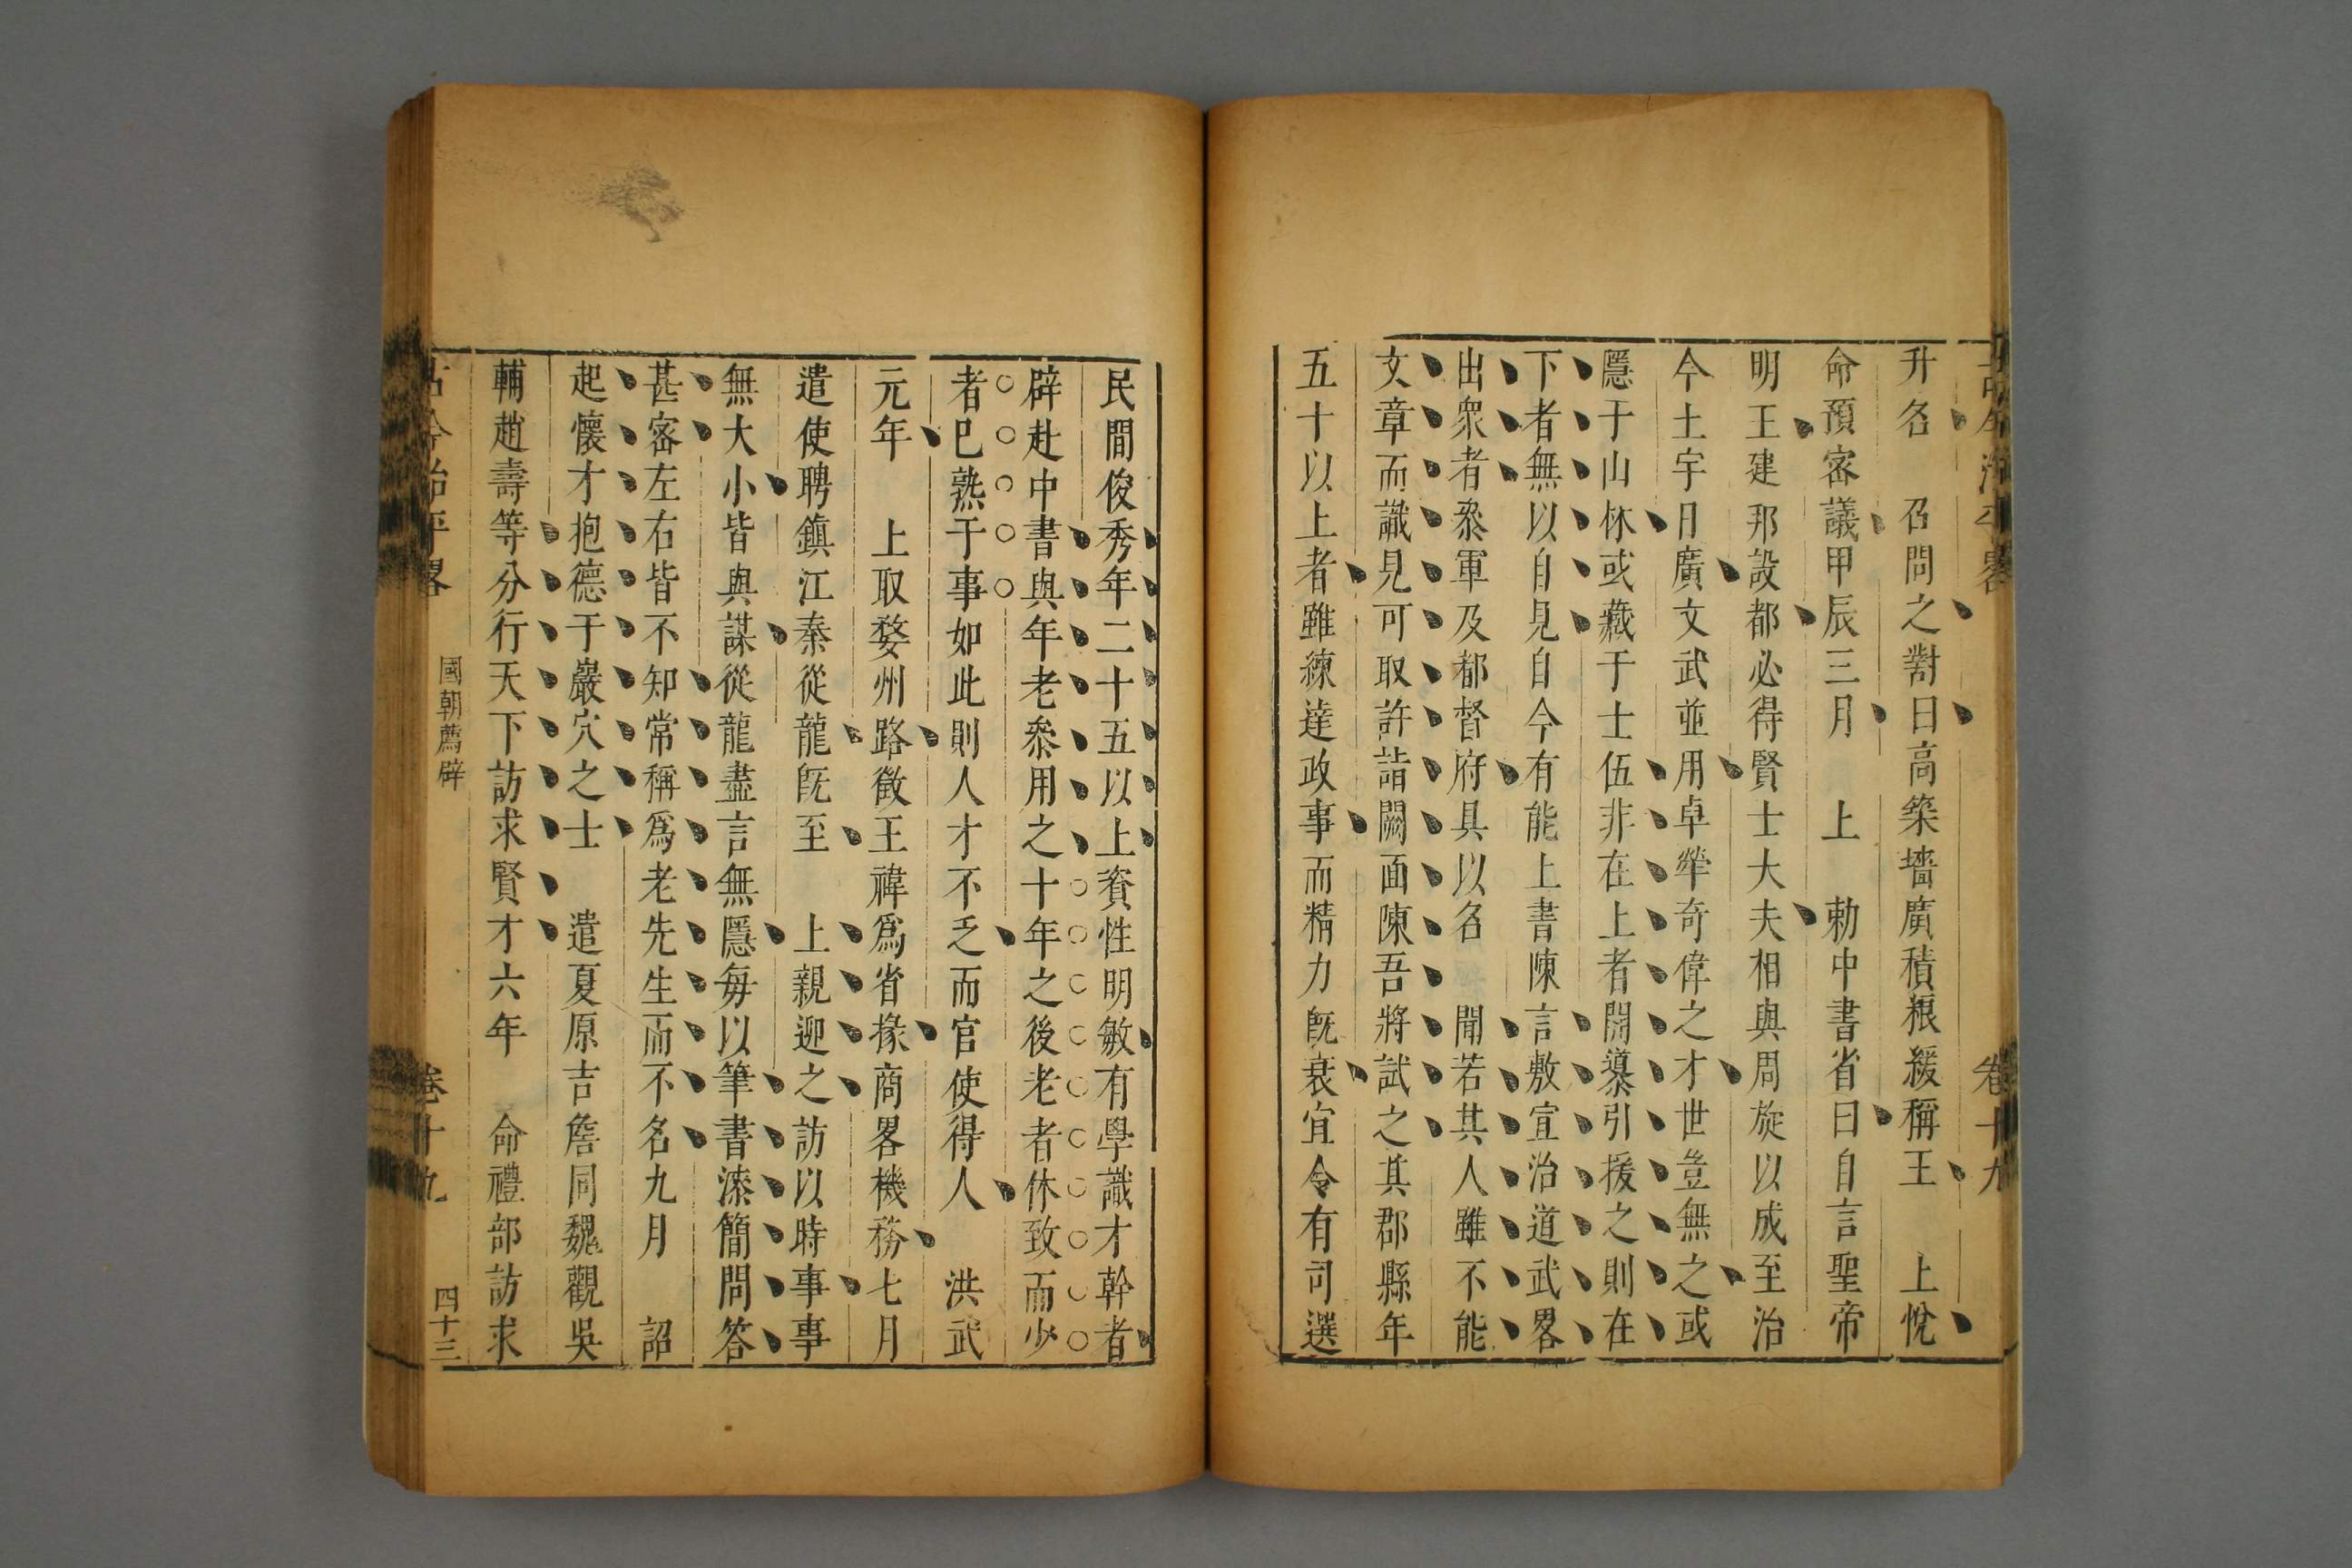 古今治平畧 卷十九
升名　召問之對曰高築墻廣積粮緩稱王　上悅
命預密議甲辰三月　上　勅中書省曰自言聖帝
明王建邦設都必得賢士大夫相與周旋以成至治
今土宇日廣文武並用卓犖奇偉之才世豈無之或
隱于山林或藏于士伍非在上者開導引援之則在
下者無以自見自今有能上書陳言敷宣治道武畧
出衆者叅軍及都督府具以名　聞若其人雖不能
文章而識見可取許詣闕面陳吾將試之其郡縣年
五十以上者雖練達政事而精力旣衰宜令有司選
民間俊秀年二十五以上資性明敏有學識才幹者
辟赴中書與年老叅用之十年之後老者休致而少
者已熟于事如此則人才不乏而官使得人　洪武
元年　上取婺州路徵王褘爲省掾商畧機務七月
遣使聘鎮江秦從龍旣至　上親迎之訪以時事事
無大小皆與謀從龍盡言無隱每以筆書漆簡問答
甚密左右皆不知常稱爲老先生而不名九月　詔
起懷才抱德于巖穴之士　遣夏原吉詹同魏觀吳
輔趙壽等分行天下訪求賢才六年　命禮部訪求
古今治平畧 國朝薦辟 卷十九 四十三